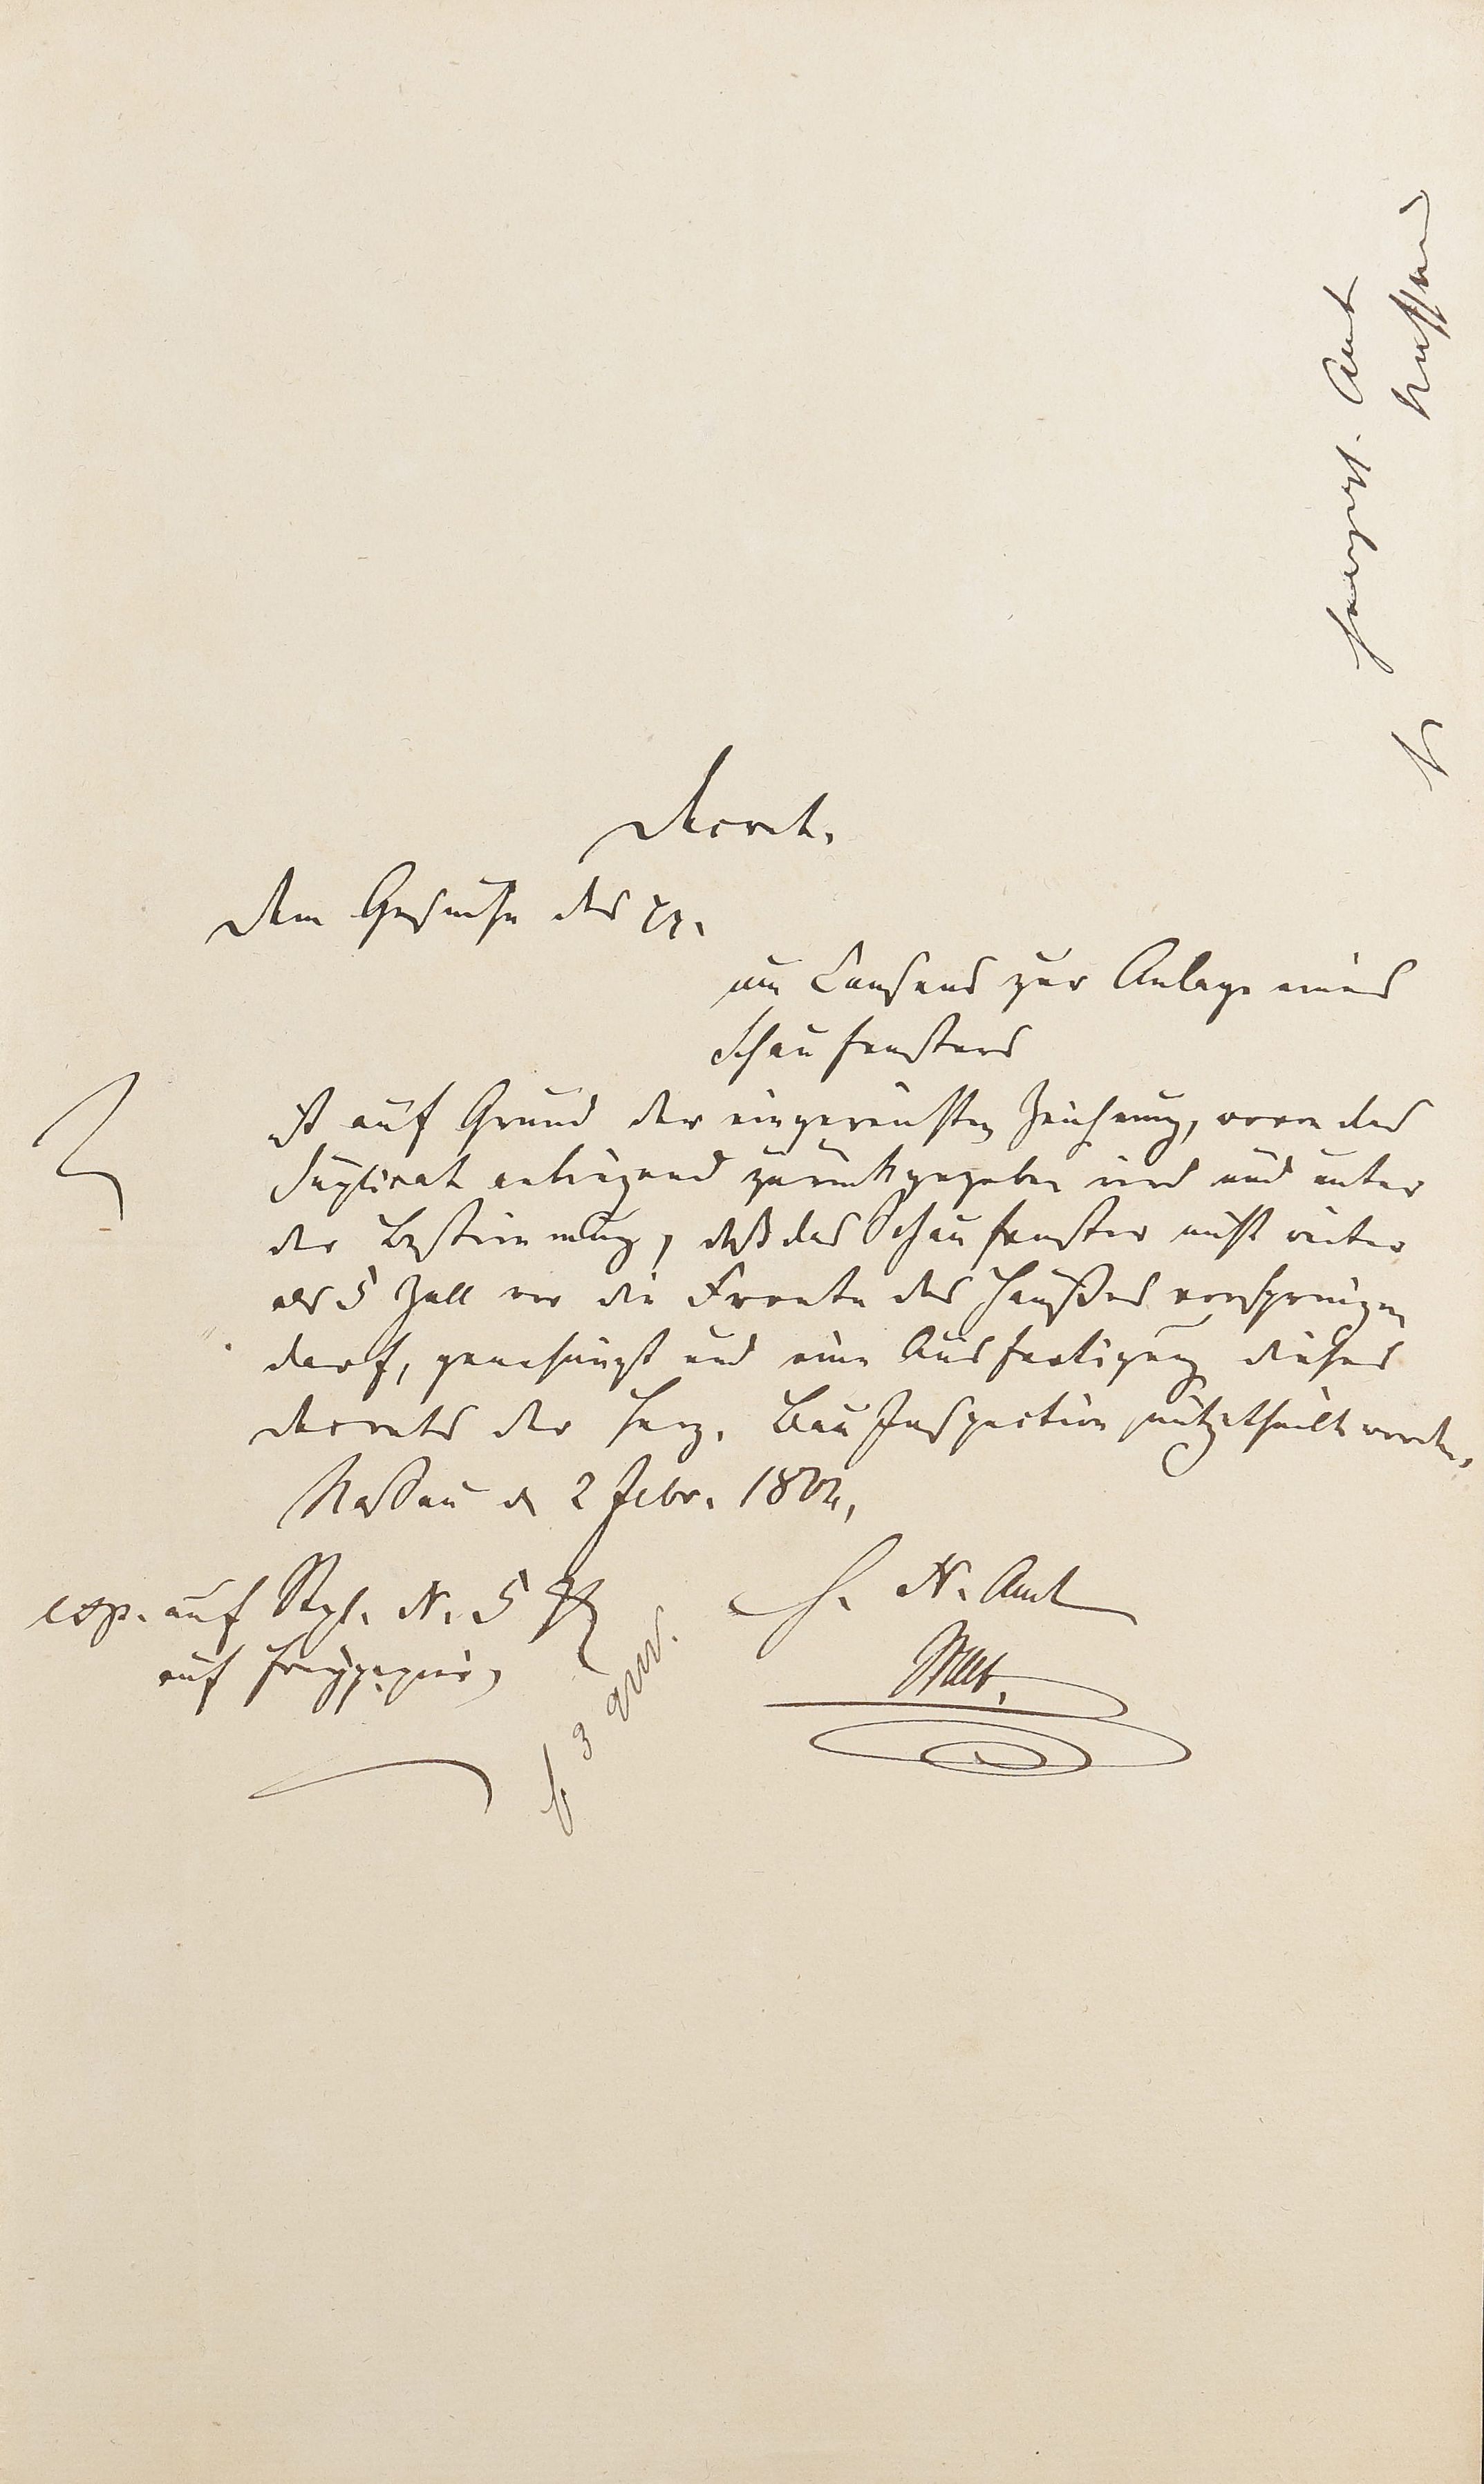 Herzogl. Amt
Nassau
Decret.
Dem Gesuche des pp.
um Consens zur Anlage eines
Schaufensters
ist auf Grund der eingereichten Zeichnung, wovon das
Duplicat anliegend zurückgegeben wird und unter
der Bestimmung, daß das Schaufenster nicht weiter
als 5 Zoll vor die Fronte des Haußes vorspringen
darf, genehmigt und eine Ausfertigung dieses
Decrets der Herz. Bau Inspection mitgetheilt werden.
Naßau d 2 Febr.
exp. auf Stpl. N. 5
auf Freypapier
H. N. Amt